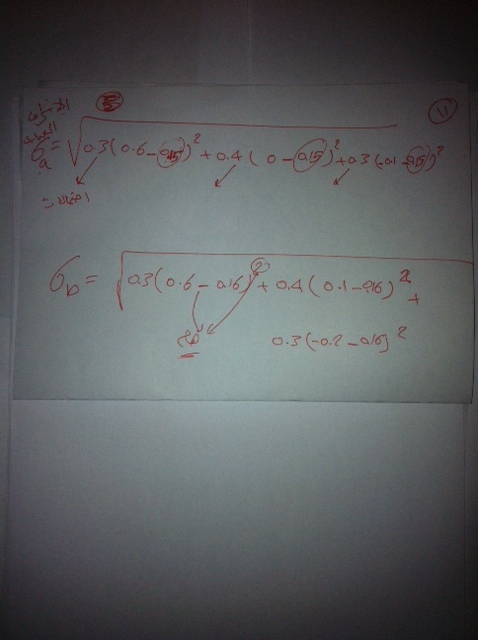 الانحراف 5 11
المعياري
σa = √ 0.3(0.6-0.15)² + 0.4(0-0.15)² + 0.3(-0.1-0.15)²
احتمالات
σb = √ 0.3(0.6-0.16)² + 0.4(0.1-0.16)² +
0.3(-0.2-0.16)²